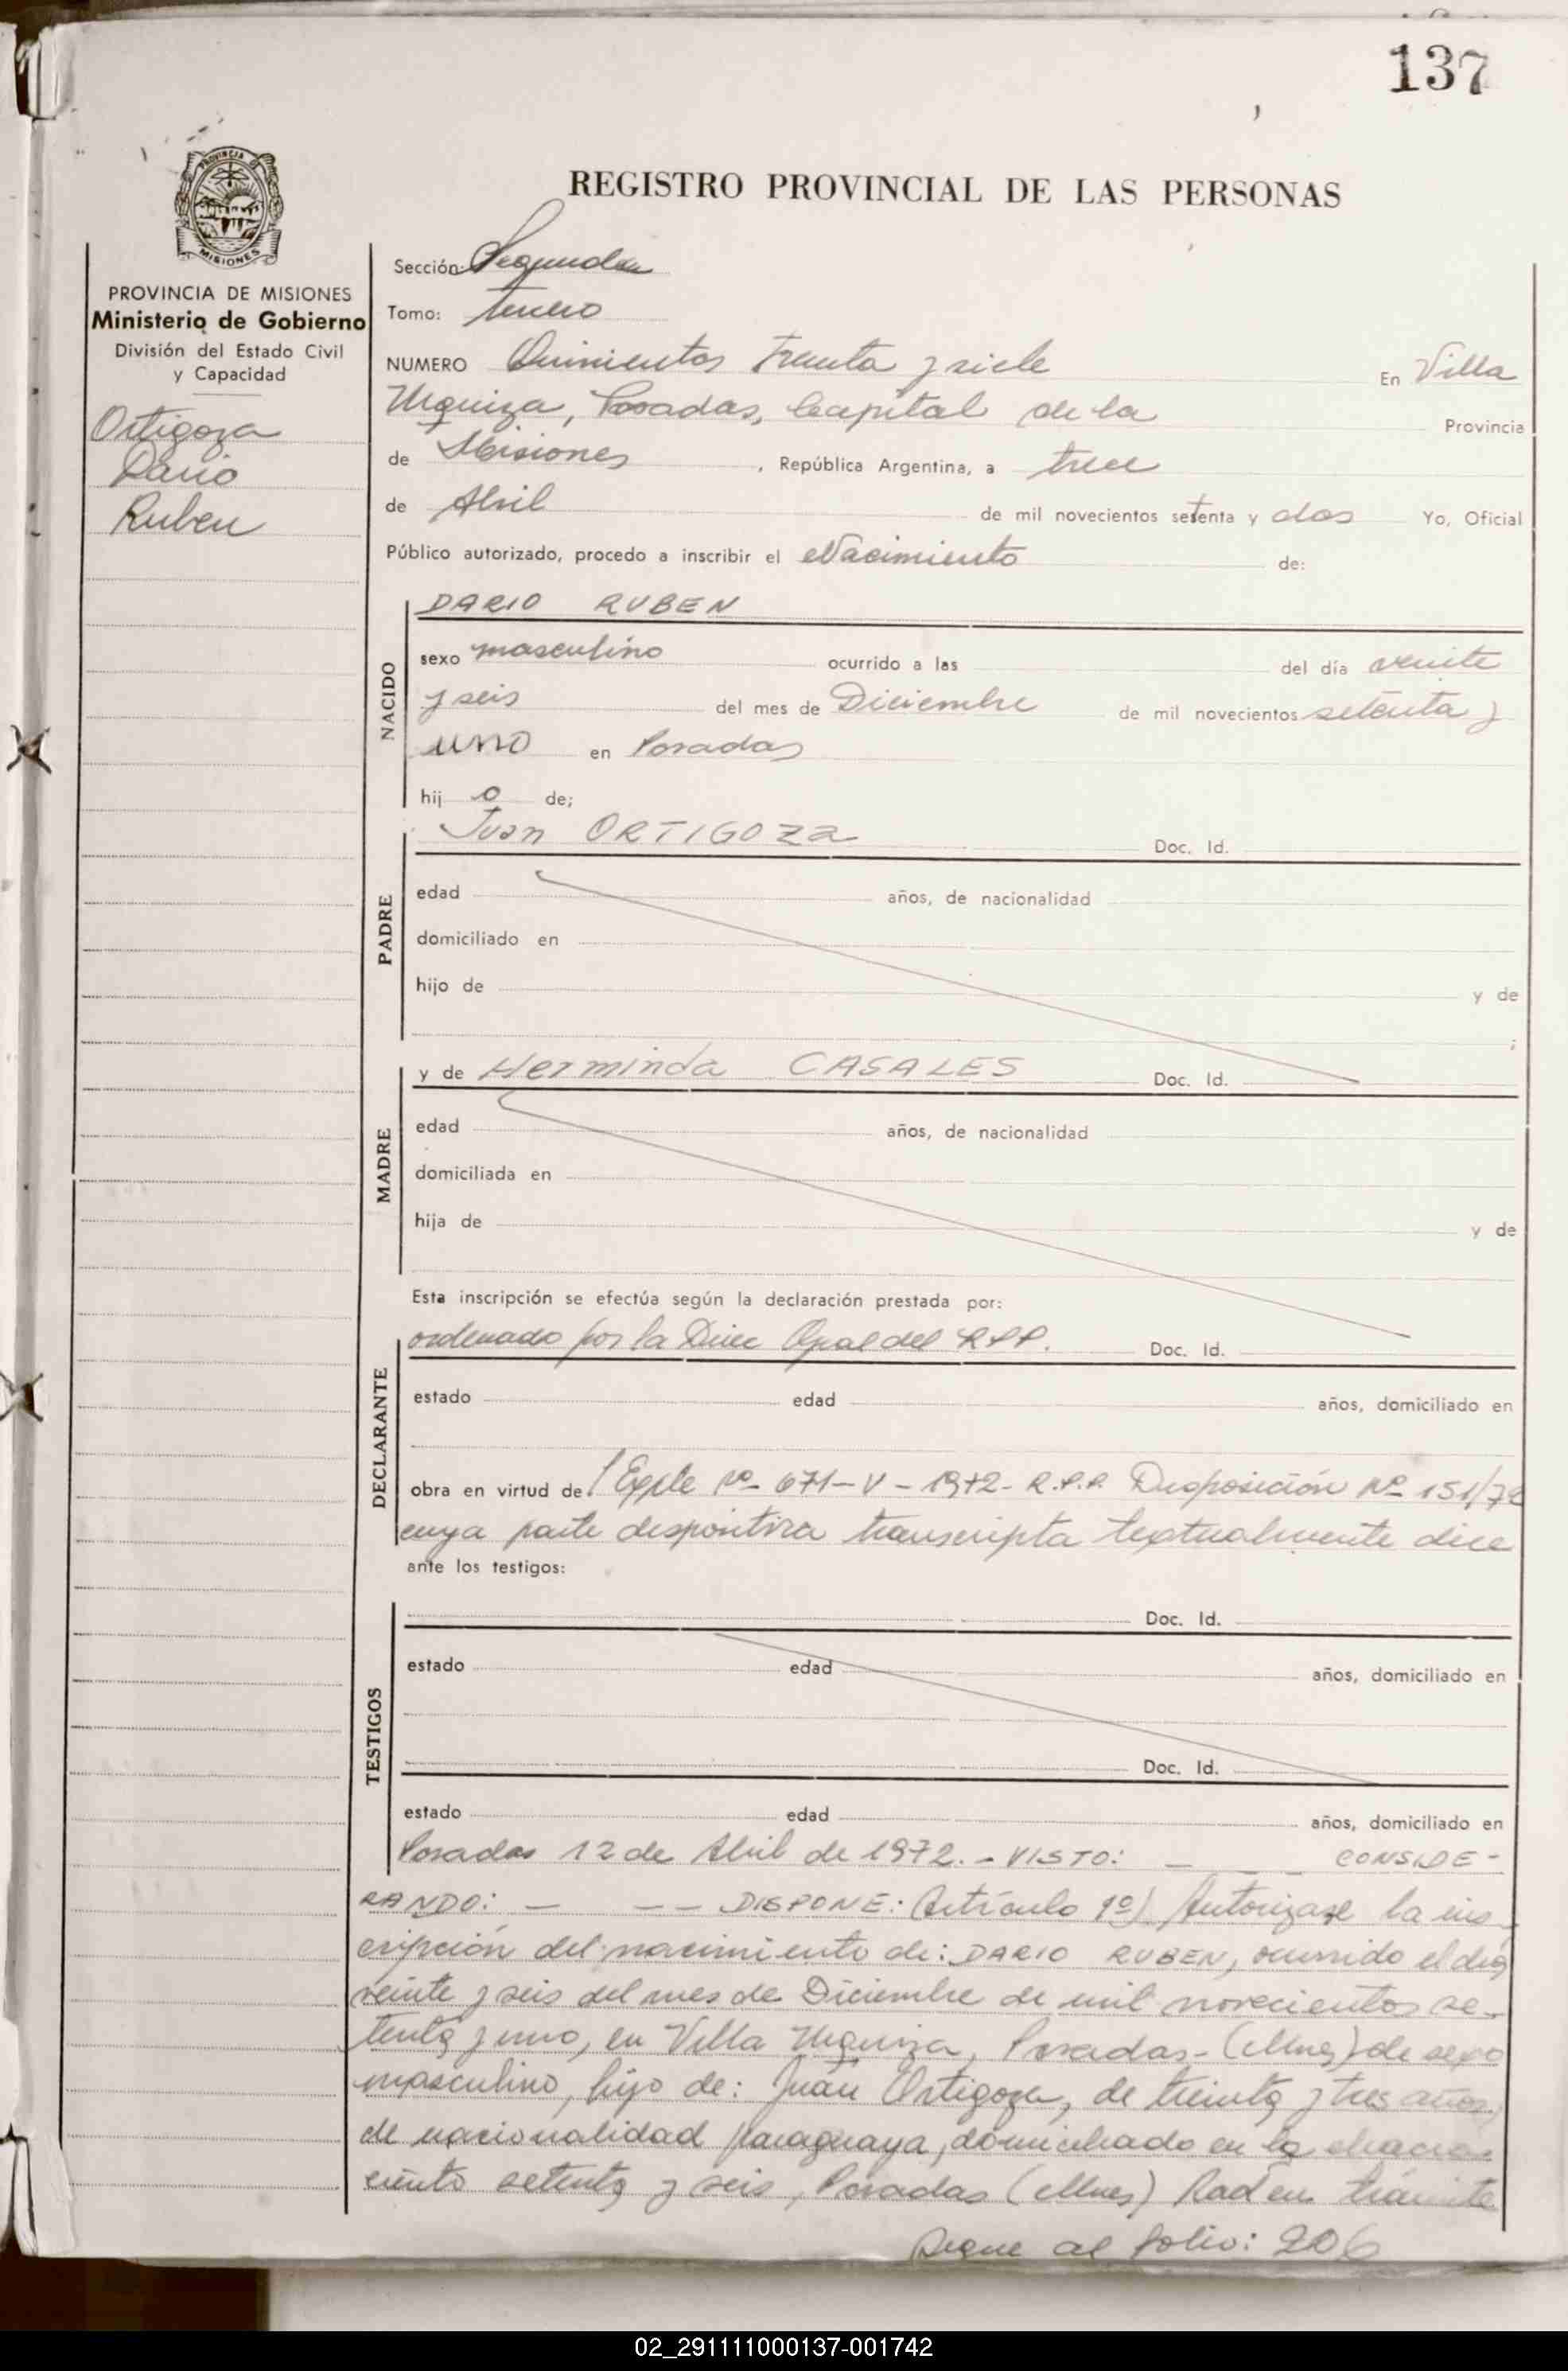 137
REGISTRO PROVINCIAL DE LAS PERSONAS
PROVINCIA
MISIONES
PROVINCIA DE MISIONES
Ministerio de Gobierno
División del Estado Civil
y Capacidad
Ortigoza
Dario
Ruben
Sección: Segunda
Tomo: tercero
NUMERO Quinientos Treinta y siete En Villa
Urquiza, Posadas, Capital de la Provincia
de Misiones, República Argentina, a trece
de Abril de mil novecientos setenta y dos Yo, Oficial
Público autorizado, procedo a inscribir el Nacimiento de:
NACIDO
DARIO RUBEN
sexo masculino ocurrido a las del día veinte
y seis del mes de Diciembre de mil novecientos setenta y
uno en Posadas
hij o de;
PADRE
Juan ORTIGOZA Doc. Id.
edad años, de nacionalidad
domiciliado en
hijo de y de
;
MADRE
y de Herminda CASALES Doc. Id.
edad años, de nacionalidad
domiciliada en
hija de y de
Esta inscripción se efectúa según la declaración prestada por:
DECLARANTE
ordenado por la Direc Gral del R.P.P. Doc. Id.
estado edad años, domiciliado en
obra en virtud de Expte Nº 671-V-1972- R.P.P. Disposición Nº 151/72
cuya parte dispositiva transcripta textualmente dice
ante los testigos:
TESTIGOS
Doc. Id.
estado edad años, domiciliado en
Doc. Id.
estado edad años, domiciliado en
Posadas 12 de Abril de 1972.- VISTO: — — — CONSIDE-
RANDO: — — — DISPONE: Artículo 1º) Autorizase la ins-
cripción del nacimiento de: DARIO RUBEN, ocurrido el día
veinte y seis del mes de Diciembre de mil novecientos se-
tenta y uno, en Villa Urquiza, Posadas- (Mnes) de sexo
masculino, hijo de: Juan Ortigoza, de treinta y tres años,
de nacionalidad paraguaya, domiciliado en la chacra
ciento setenta y seis, Posadas (Mnes) Rad en trámite
Sigue al folio: 206
02_291111000137-001742